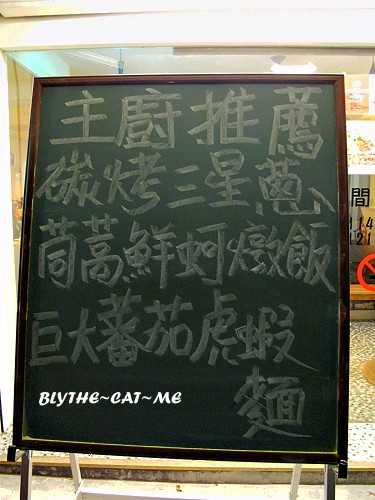 主廚推薦
碳烤三星蔥
茼蒿鮮蚵燉飯
巨大蕃茄虎蝦
麵
BLYTHE~CAT~ME
間